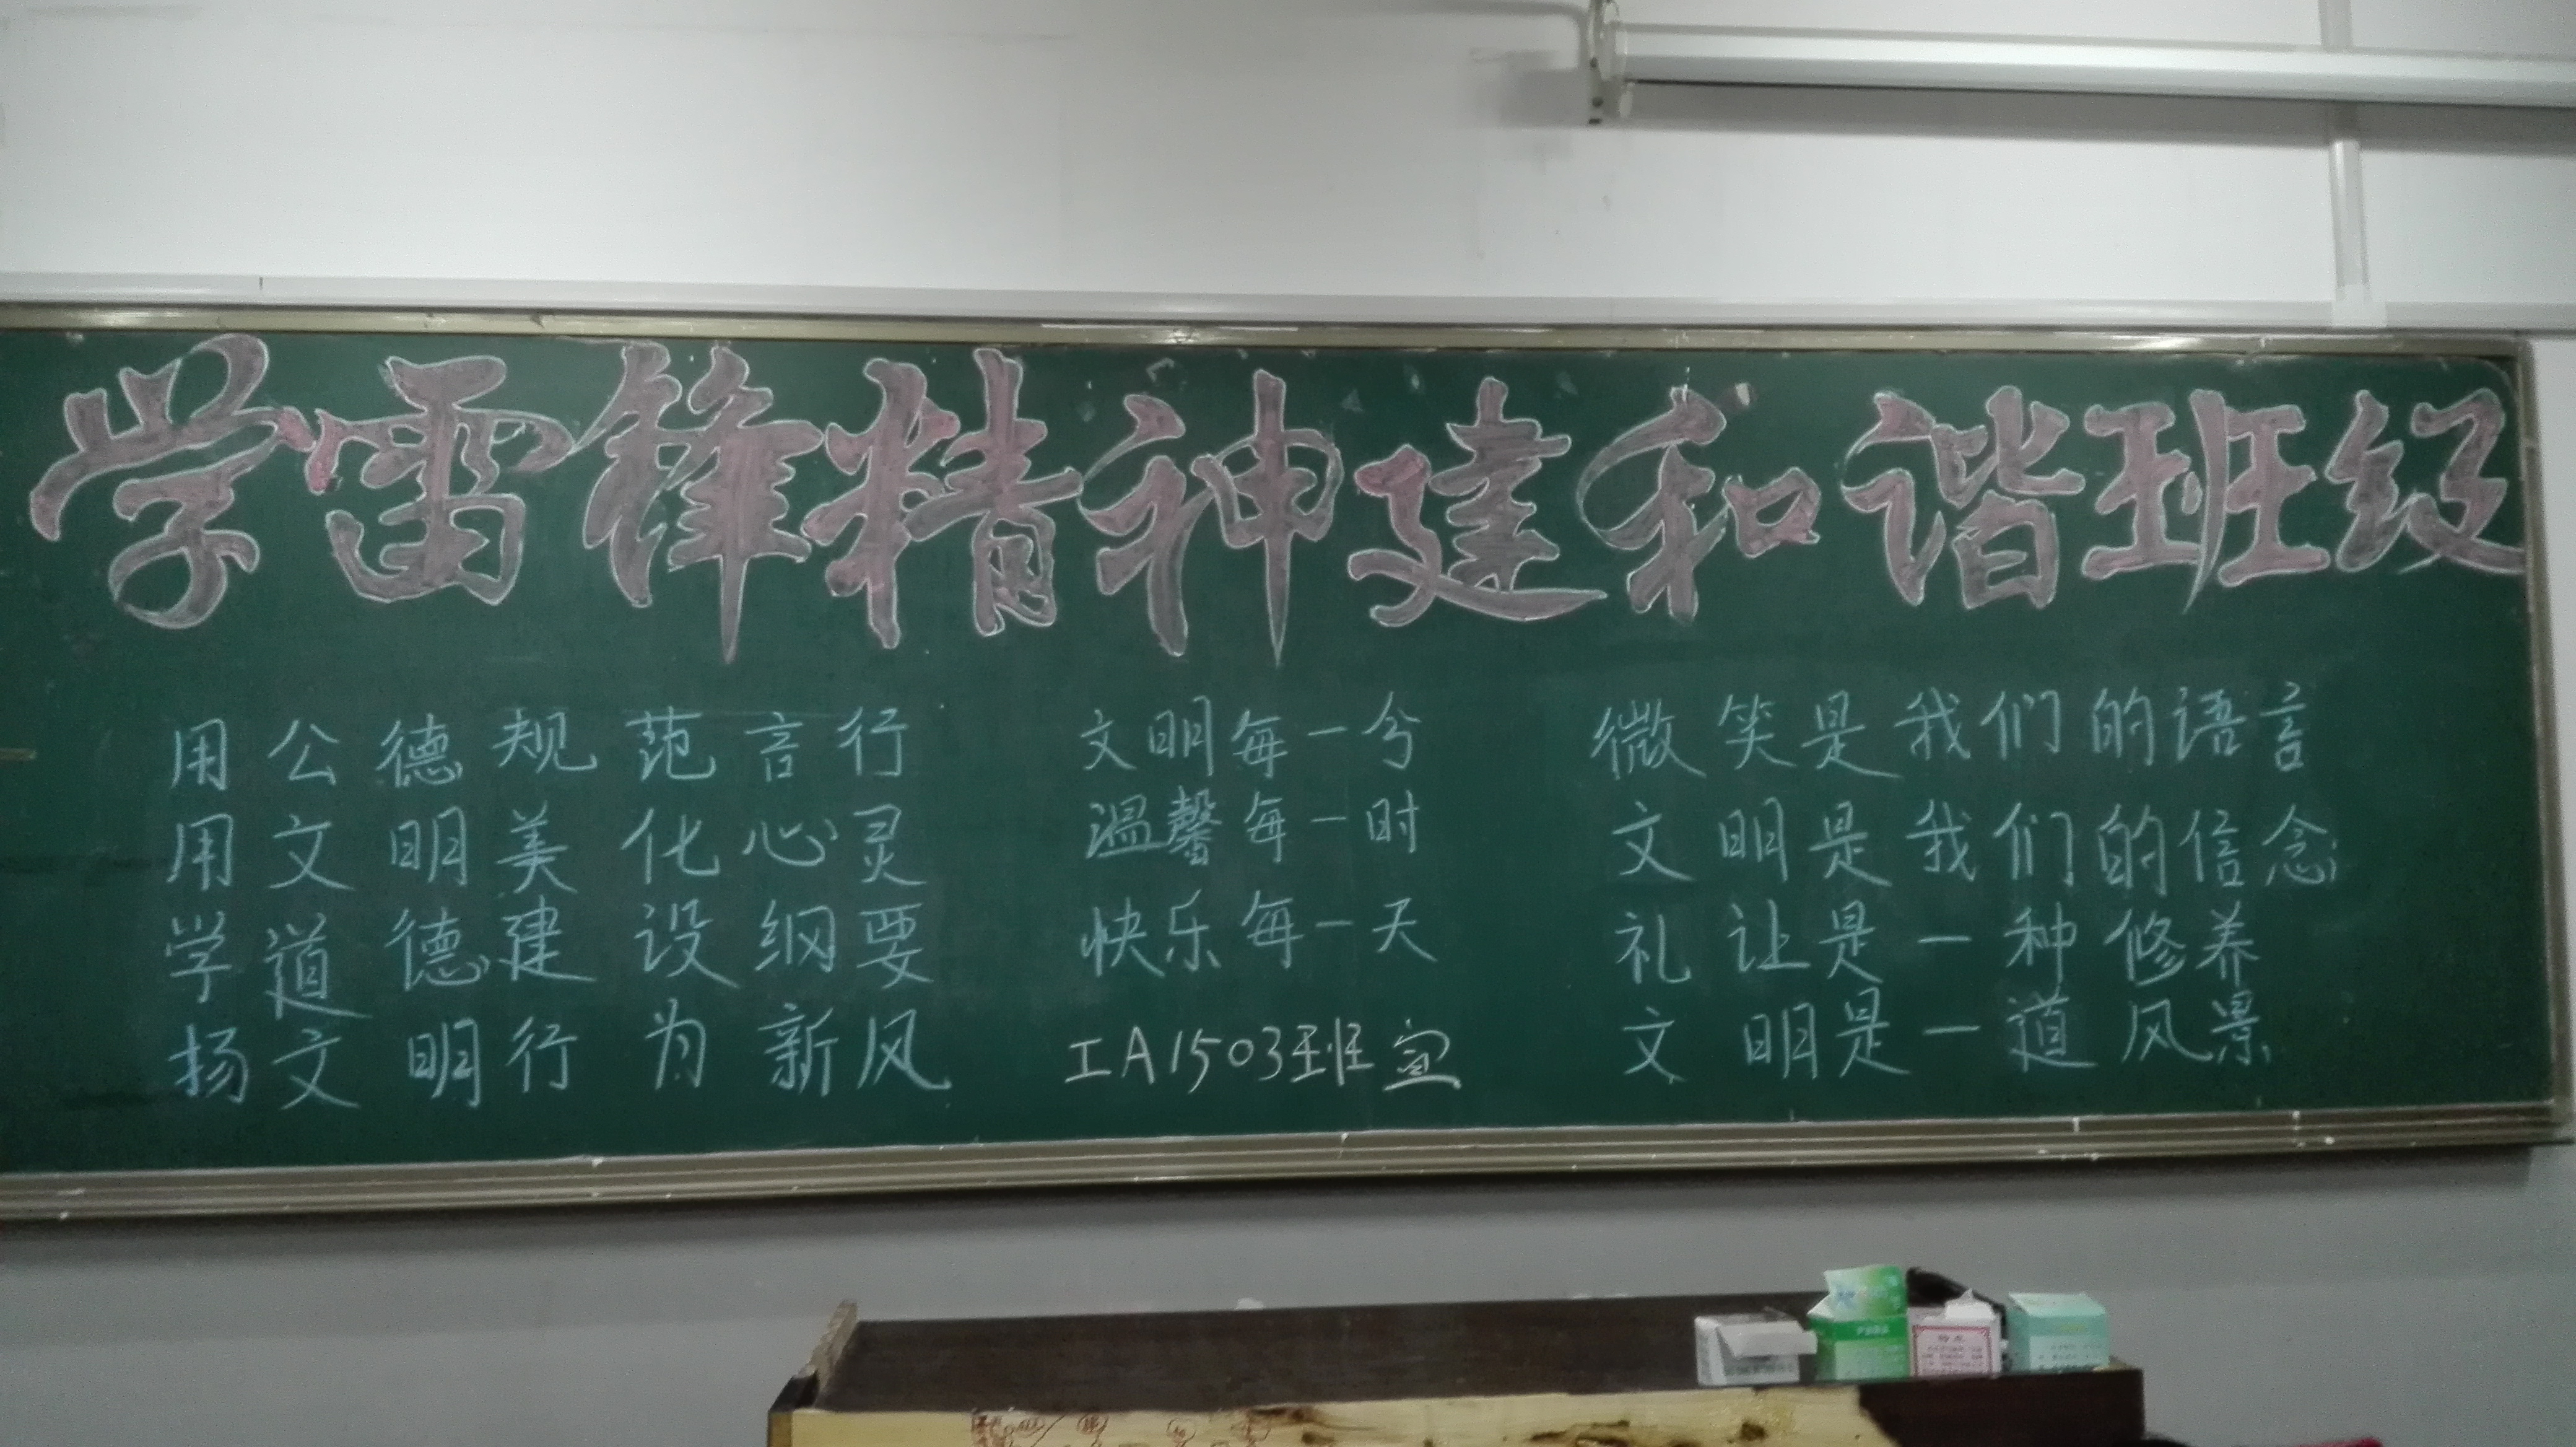 学雷锋精神建和谐班级
用公德规范言行
用文明美化心灵
学道德建设纲要
扬文明行为新风
文明每一兮
温馨每一时
快乐每一天
工A1503班宣
微笑是我们的语言
文明是我们的信念
礼让是一种修养
文明是一道风景